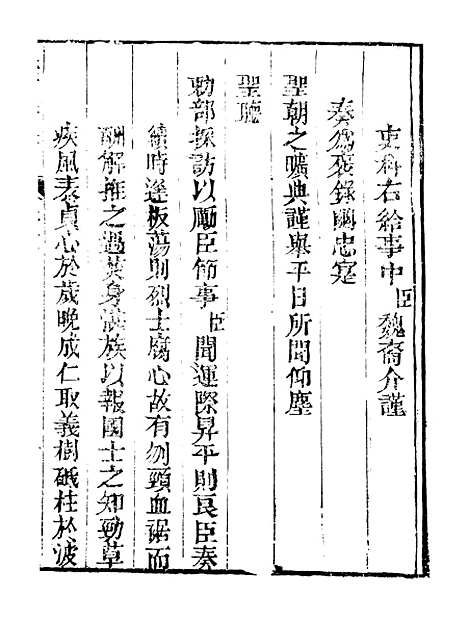 吏科右給事中臣魏裔介謹
奏為褒錄幽忠寔
聖朝之曠典謹舉平日所聞仰塵
聖聽
勅部採訪以勵臣節事臣聞運際昇平則良臣奏
績時逢板蕩則烈士腐心故有刎頸血裾而
酬解推之遇其身湛族以報國士之知勁草
疾風表貞心於歲晚成仁取義樹砥柱於波